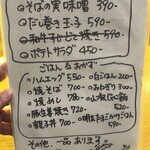 ◎そばの実味噌 390-
◎だし巻き玉子 590-
焼き 590-
◎ポテトサラダ 450-
ごはん&おかず
○ハムエッグ 550-
○白ごはん 200-
○焼そば 700-
○おむすび 300-
○焼めし 780-
○豚生姜焼き 720-
○親子丼 700-
その他、一品あります。